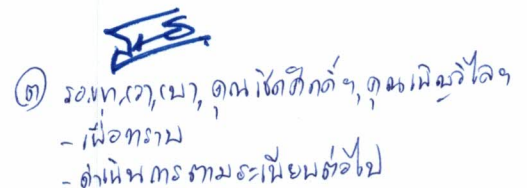 ๓ รอ.ผท.(ว), (บ), คุณเชิดศักดิ์ฯ, คุณเพ็ญวิไลฯ
- เพื่อทราบ
- ดำเนินการตามระเบียบต่อไป